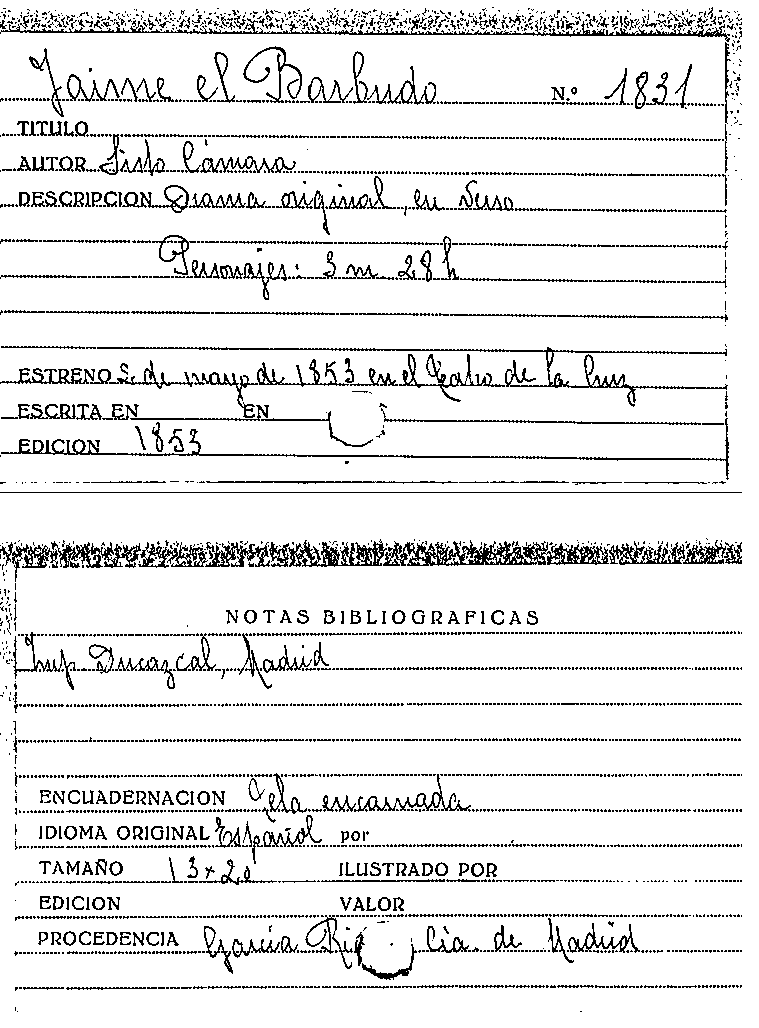 Jaime el Barbudo N.º 1831
TITULO
AUTOR Sisto Cámara
DESCRIPCION Drama original, en verso
Personajes: 3 m 28 h
ESTRENO 2 de mayo de 1853 en el Teatro de la Cruz
ESCRITA EN EN
EDICION 1853
NOTAS BIBLIOGRAFICAS
Imp Ducazcal, Madrid
ENCUADERNACION Tela encarnada
IDIOMA ORIGINAL Español por
TAMAÑO 13 x 20 ILUSTRADO POR
EDICION VALOR
PROCEDENCIA García Cía. de Madrid